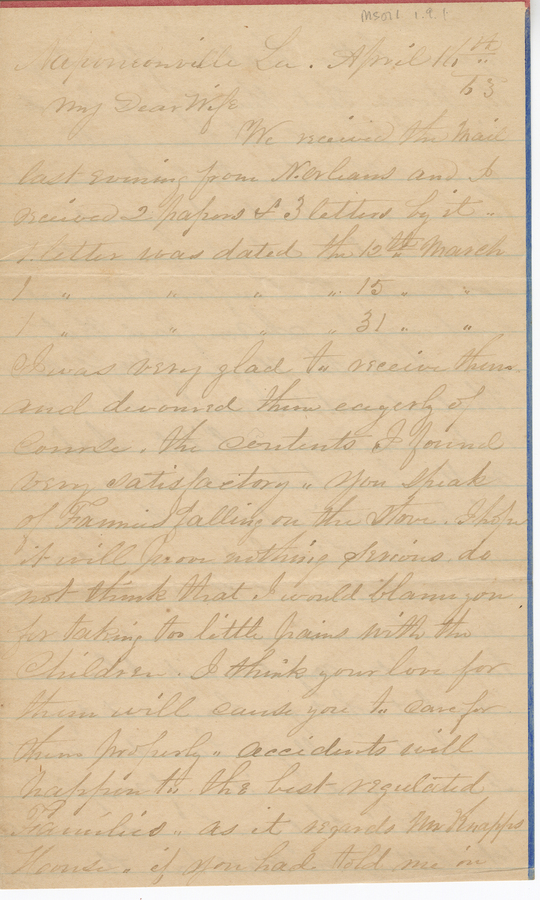 MS021. 1.9.1
Naponeonville La. April 16th
63
My Dear Wife
We received the Mail
last evening from N. Orleans and I
received 2 papers & 3 letters by it.
1 letter was dated the 12th March
1 " " " " 15 " "
1 " " " " 31 " "
I was very glad to receive them
and devoured them eagerly of
course. the contents I found
very satisfactory. You speak
of Fannies falling on the Stove. I hope
it will prove nothing serious. do
not think that I would blame you
for taking too little pains with the
Children. I think your love for
them will cause you to care for
them properly. accidents will
happen to the best regulated
Families. as it regards Mr Knapps
House. if you had told me in